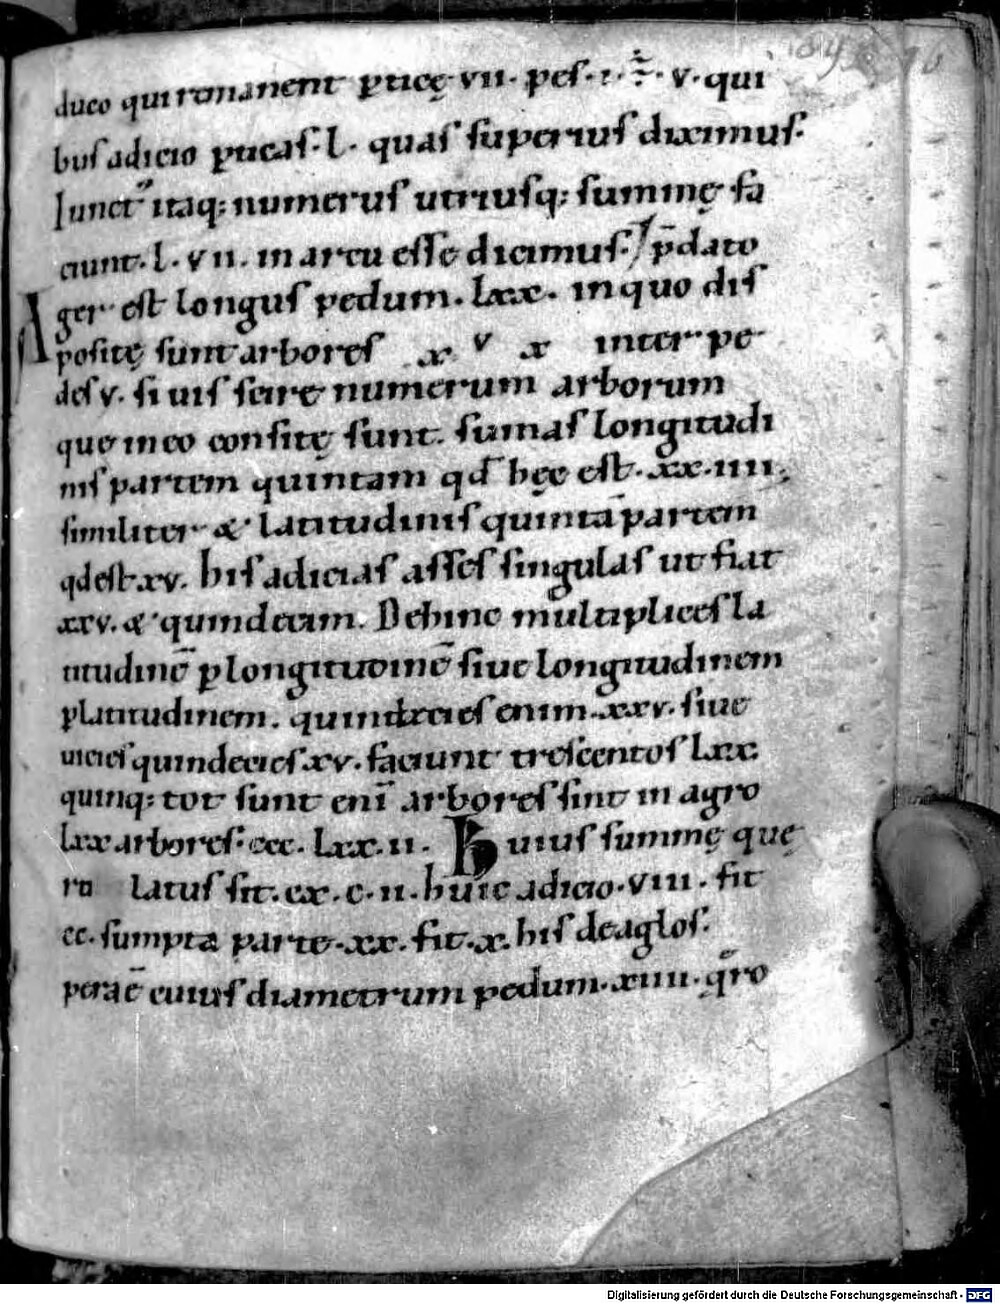 duco qui romanent ꝑticę vii. pes. i. v. qui
bus adicio ꝑticas. l. quas superius diximus.
Iunct itaq; numerus utriusq; summę fa
ciunt. l. vii. in arcu esse dicimus. p̄dato
Ager est longus pedum. lxx. in quo dis
positę sunt arbores x v x inter pe
des v. si uis scire numerum arborum
que in eo consitę sunt. sumas longitudi
nis partem quintam qd hęc est. xx.iiii.
similiter & latitudinis quintā partem
qd est. xv. his adicias asses singulas ut fiat
xxv. & quindecim. Dehinc multiplices la
titudinē ꝑ longitudinē siue longitudinem
ꝑ latitudinem. quindecies enim. xxv. siue
uicies quindecies xv. faciunt trescentos lxx
quinq; tot sunt enī arbores sint in agro
lxx arbores. ccc. lxx. ii. Huius summę quę
ro latus sit. cx. c. ii. huic adicio. viii. fit
cc. sumpta parte. xx. fit. x. his deaglos.
perac̄ cuius diametrum pedum. xiiii. q̄ro
Digitalisierung gefördert durch die Deutsche Forschungsgemeinschaft - DFG